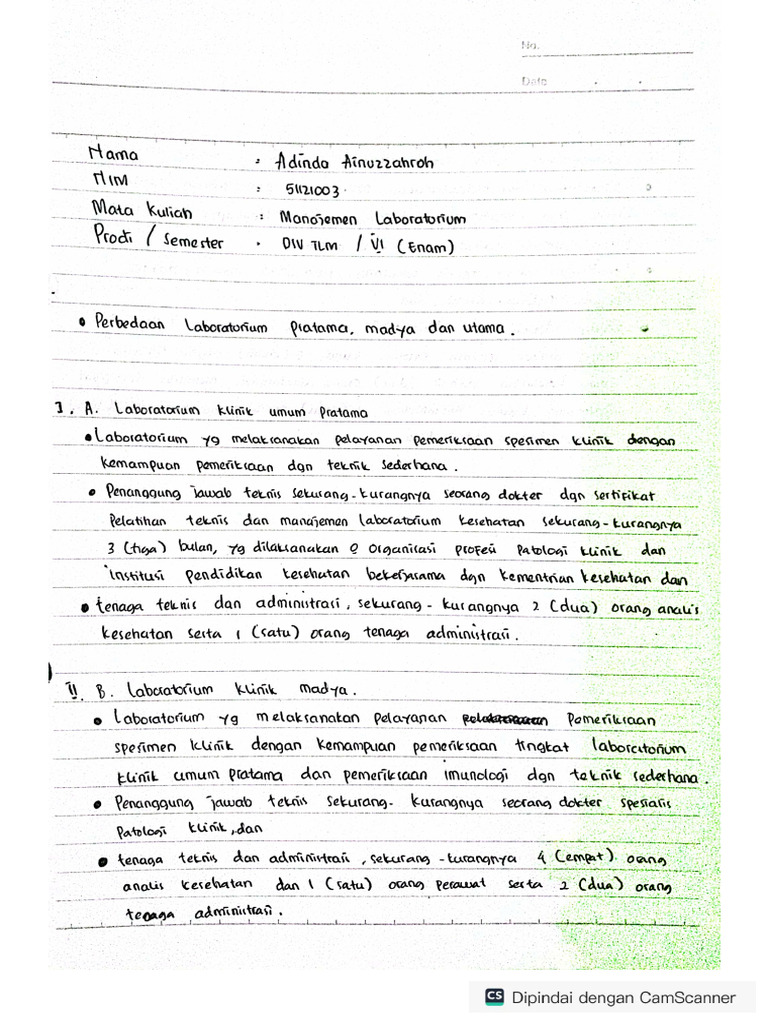 No.
Date
Nama : Adinda Ainuzzahroh
NIM : 51121003
Mata Kuliah : Manajemen Laboratorium
Prodi / Semester : DIV TLM / VI (Enam)
• Perbedaan Laboratorium Pratama, madya dan utama.
I. A. Laboratorium klinik umum Pratama
• Laboratorium yg melaksanakan pelayanan pemeriksaan spesimen klinik dengan
kemampuan pemeriksaan dgn teknik sederhana.
• Penanggung jawab teknis sekurang-kurangnya seorang dokter dgn sertifikat
pelatihan teknis dan manajemen laboratorium kesehatan sekurang-kurangnya
3 (tiga) bulan, yg dilaksanakan @ organisasi profesi patologi klinik dan
institusi pendidikan kesehatan bekerjasama dgn Kementrian kesehatan dan
• tenaga teknis dan administrasi, sekurang-kurangnya 2 (dua) orang analis
kesehatan serta 1 (satu) orang tenaga administrasi.
II. B. Laboratorium klinik madya.
• Laboratorium yg melaksanakan pelayanan pemeriksaan
spesimen klinik dengan kemampuan pemeriksaan tingkat laboratorium
klinik umum pratama dan pemeriksaan imunologi dgn teknik sederhana.
• Penanggung jawab teknis sekurang-kurangnya seorang dokter spesialis
patologi klinik, dan
• tenaga teknis dan administrasi, sekurang-kurangnya 4 (empat) orang
analis kesehatan dan 1 (satu) orang perawat serta 2 (dua) orang
tenaga administrasi.
CS Dipindai dengan CamScanner